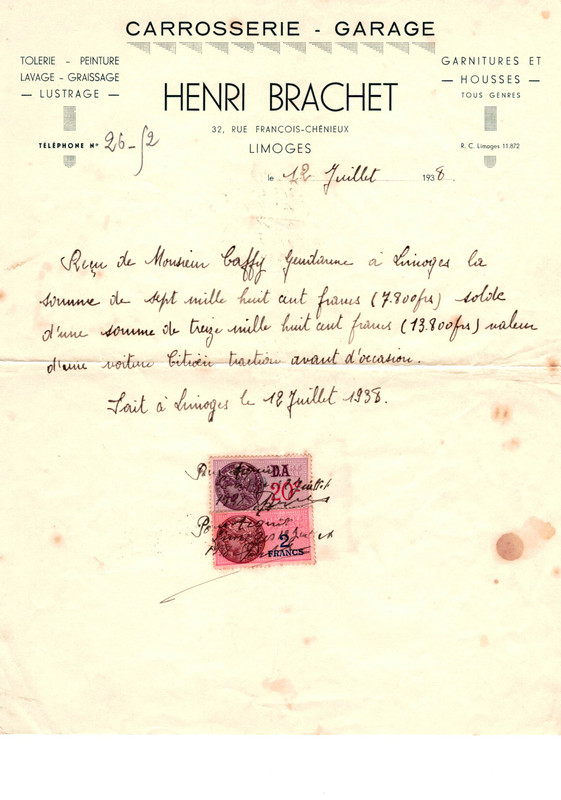 CARROSSERIE - GARAGE
TOLERIE - PEINTURE
LAVAGE - GRAISSAGE
— LUSTRAGE —
TÉLÉPHONE Nº 26-52
HENRI BRACHET
32, RUE FRANÇOIS-CHÉNIEUX
LIMOGES
GARNITURES ET
— HOUSSES —
TOUS GENRES
R. C. Limoges 11.872
le 12 Juillet 1938.
Reçu de Monsieur Caffy Gendarme à Limoges la
somme de sept mille huit cent francs (7.800frs) solde
d'une somme de treize mille huit cent francs (13.800frs) valeur
d'une voiture Citroën traction avant d'occasion.
Fait à Limoges le 12 Juillet 1938.
D.A
20
Juillet
2
FRANCS